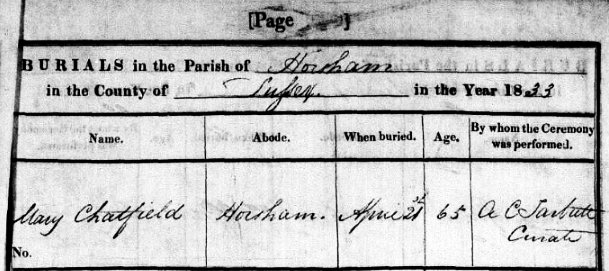 [Page ]
BURIALS in the Parish of Horsham
in the County of Sussex in the Year 1833
Name. Abode. When buried. Age. By whom the Ceremony was performed.
Mary Chatfield Horsham. April 21st 65 A C
Curate
No.